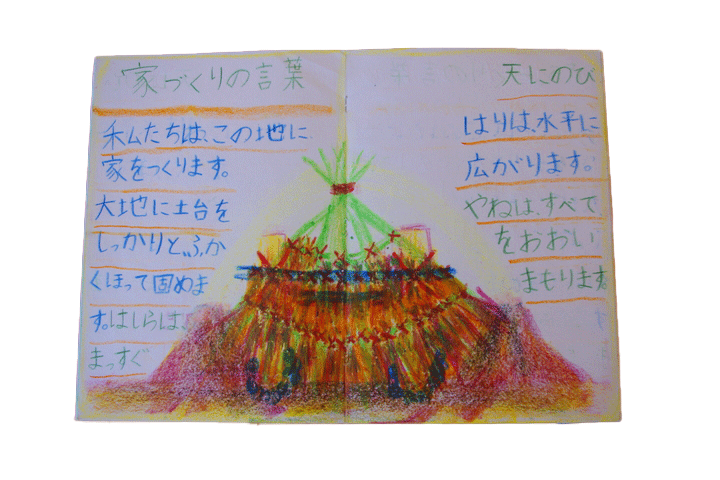 家づくりの言葉
私たちは、この地に
家をつくります。
大地に土台を
しっかりと、ふか
くほって固めま
す。はしらは、
まっすぐ
天にのび
はりは、水平に
広がります。
やねは、すべて
をおおい
まもります